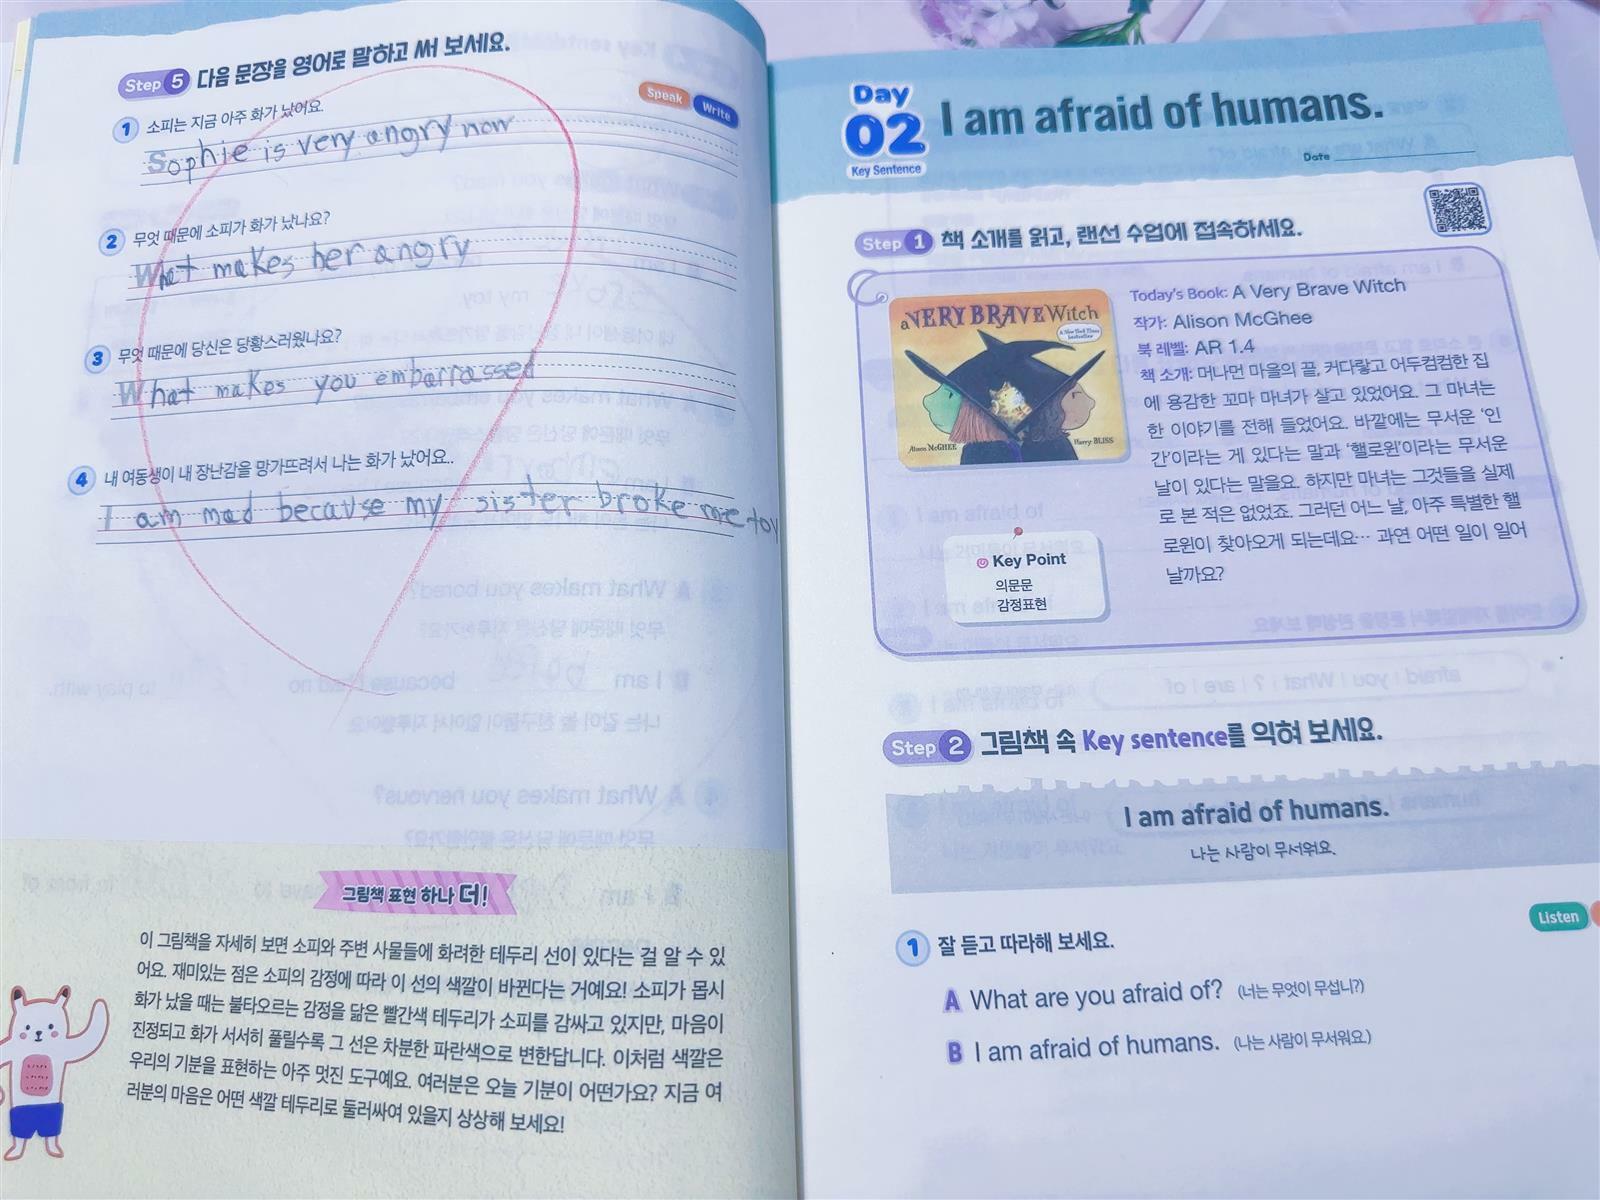 Step 5 다음 문장을 영어로 말하고 써 보세요.
Speak Write
1 소피는 지금 아주 화가 났어요.
Sophie is very angry now
2 무엇 때문에 소피가 화가 났나요?
What makes her angry
3 무엇 때문에 당신은 당황스러웠나요?
What makes you embarrassed
4 내 여동생이 내 장난감을 망가뜨려서 나는 화가 났어요..
I am mad because my sister broke me toy
그림책 표현 하나 더!
이 그림책을 자세히 보면 소피와 주변 사물들에 화려한 테두리 선이 있다는 걸 알 수 있
어요. 재미있는 점은 소피의 감정에 따라 이 선의 색깔이 바뀐다는 거예요! 소피가 몹시
화가 났을 때는 불타오르는 감정을 닮은 빨간색 테두리가 소피를 감싸고 있지만, 마음이
진정되고 화가 서서히 풀릴수록 그 선은 차분한 파란색으로 변한답니다. 이처럼 색깔은
우리의 기분을 표현하는 아주 멋진 도구예요. 여러분은 오늘 기분이 어떤가요? 지금 여
러분의 마음은 어떤 색깔 테두리로 둘러싸여 있을지 상상해 보세요!
Day
02
Key Sentence
I am afraid of humans.
Date
Step 1 책 소개를 읽고, 랜선 수업에 접속하세요.
a VERY BRAVE Witch
A New York Times
bestseller
Alison McGHEE
Harry BLISS
Today's Book: A Very Brave Witch
작가: Alison McGhee
북 레벨: AR 1.4
책 소개: 머나먼 마을의 끝, 커다랗고 어두컴컴한 집
에 용감한 꼬마 마녀가 살고 있었어요. 그 마녀는
한 이야기를 전해 들었어요. 바깥에는 무서운 '인
간'이라는 게 있다는 말과 '핼로윈'이라는 무서운
날이 있다는 말을요. 하지만 마녀는 그것들을 실제
로 본 적은 없었죠. 그러던 어느 날, 아주 특별한 핼
로윈이 찾아오게 되는데요… 과연 어떤 일이 일어
날까요?
Key Point
의문문
감정표현
Step 2 그림책 속 Key sentence를 익혀 보세요.
I am afraid of humans.
나는 사람이 무서워요.
Listen
1 잘 듣고 따라해 보세요.
A What are you afraid of? (너는 무엇이 무섭니?)
B I am afraid of humans. (나는 사람이 무서워요.)